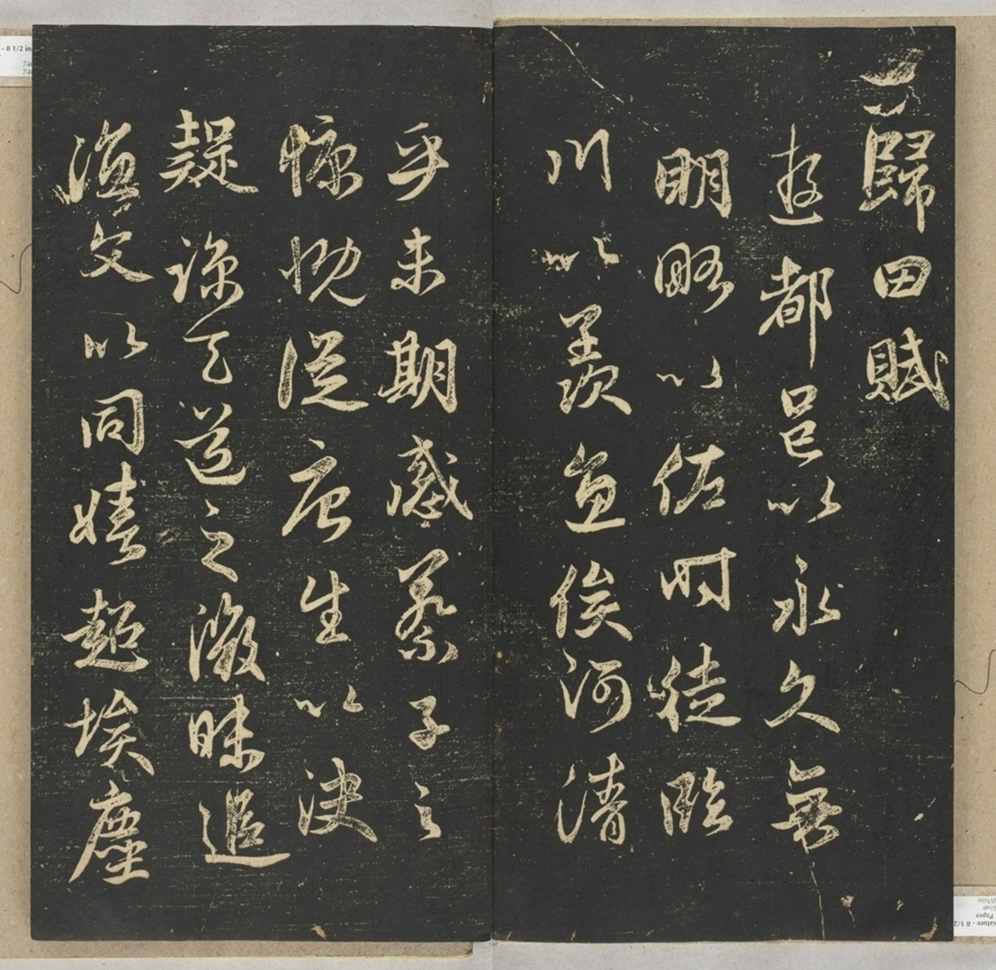 歸田賦
遊都邑以永久無
明略以佐時徒臨
川以羨魚俟河清
乎未期感蔡子之
慷慨從唐生以決
疑諒天道之微昧追
漁父以同嬉超埃塵
- 8 1/2 in